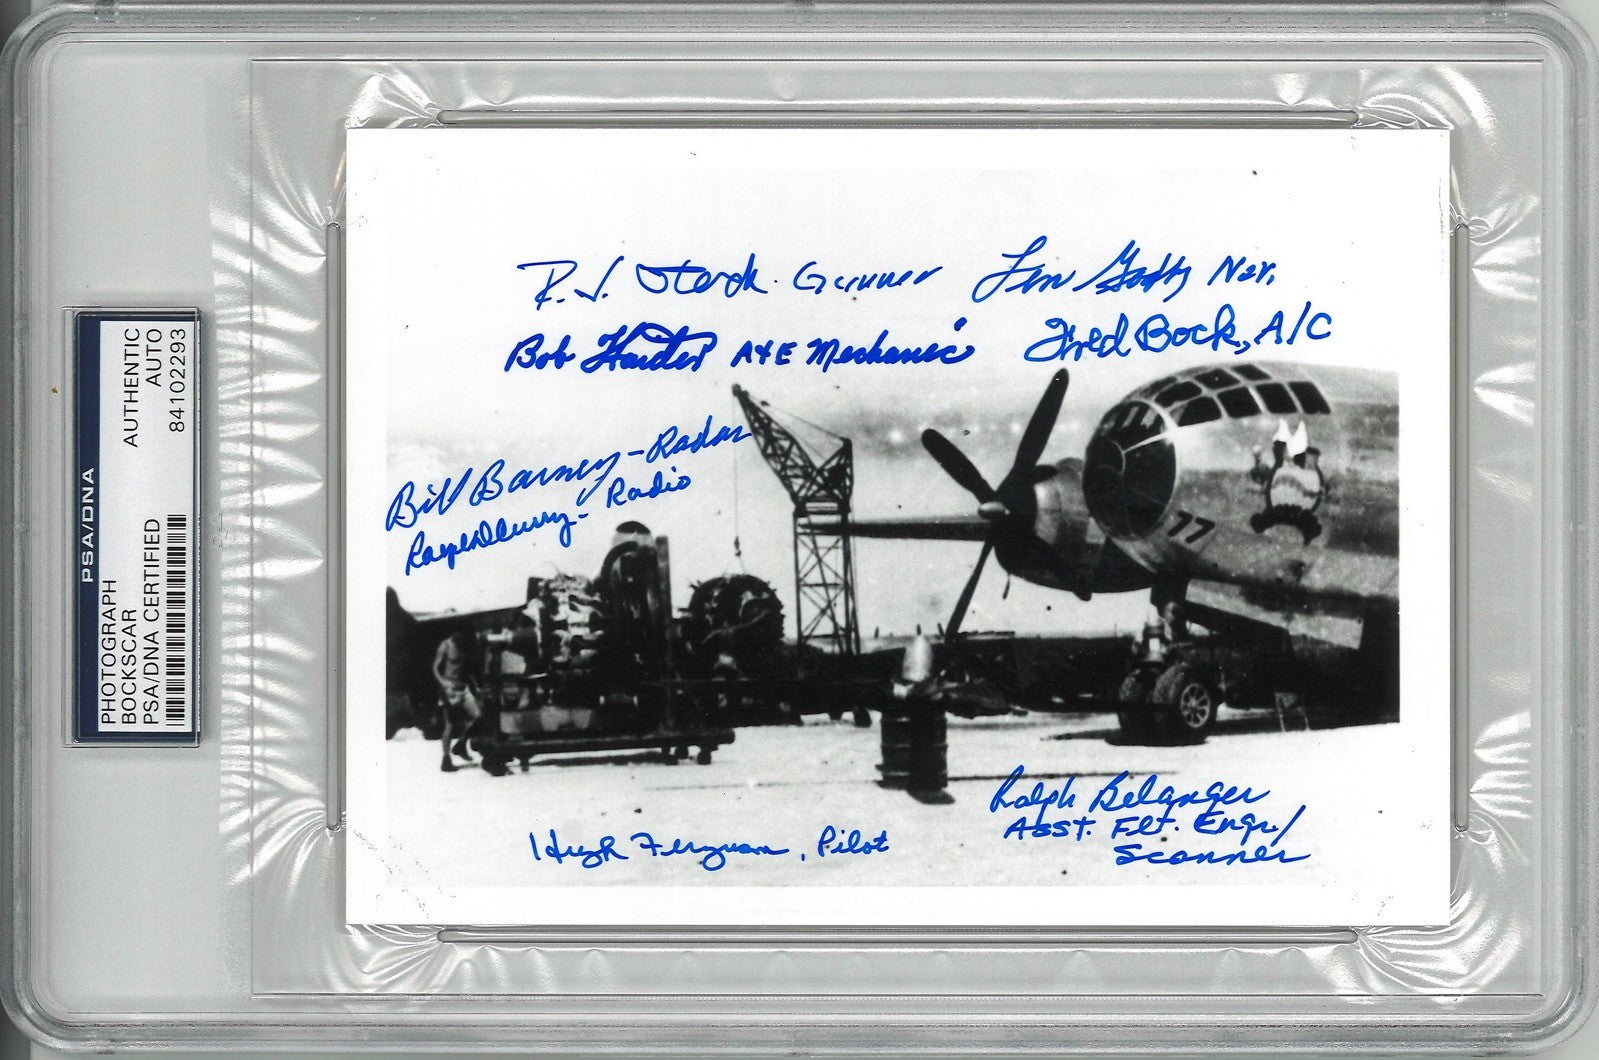 PSA/DNA
PHOTOGRAPH
BOCKSCAR
PSA/DNA CERTIFIED
AUTHENTIC
AUTO
84102293
R.J. Stock. Gunner
Len Godfrey Nav.
Bob A&E Mechanic
Fred Bock, A/C
Bill Barney - Radar
Curry - Radio
77
Hugh Ferguson, Pilot
Ralph Belanger
Asst. Flt. Engr./
Scanner